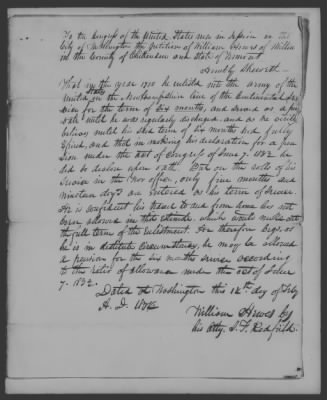 To the Congress of the United States now in session in the
City of Washington the petition of William Hewes of Milton
in the County of Chittenden and State of Vermont
Humbly Sheweth —
That in the year 1780 he enlisted into the army of the
United States in the Massachusetts line of the Continental
for the term of six months, and served as a pri
vate until he was regularly discharged, and as he verily
believes until his said term of six months had fully
expired, and that in making his declaration for a pen
sion under the act of Congress of June 7. 1832 he
did so declare upon oath. But on the rolls of his
service in the War office, only five months and
nineteen days are entered as his term of service
He is confident his travel to and from home has not
been allowed in that estimate, which would make out
the full term of his enlistment. He therefore begs, as
he is in destitute circumstances, he may be allowed
a pension for the six months service according
to the rates of allowance under the act of June
7. 1832.
Dated at Washington this 12th day of Feby
A. D.
William Hewes by
his Atty. I. F. Redfield.